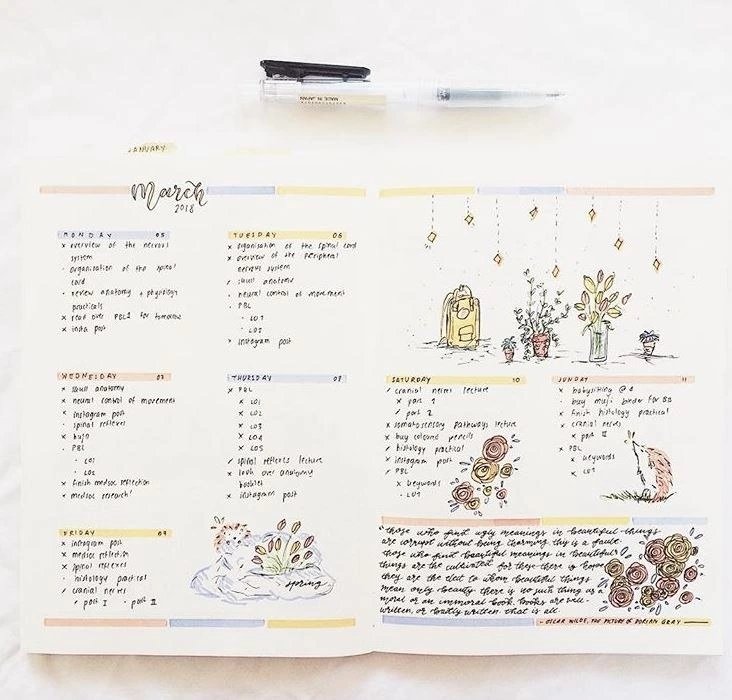 MADE IN JAPAN
JANUARY
March
2018
MONDAY 05
x overview of the nervous
system
· organisation of the spinal
cord
· review anatomy + physiology
practicals
x read over PBL1 for tomorrow
x insta post
TUESDAY 06
x organisation of the spinal cord
x overview of the peripheral
nervous system
/ skull anatomy
· neural control of movement
· PBL
· LO1
· LO2
x instagram post
WEDNESDAY 07
x skull anatomy
x neural control of movement
x instagram post
· spinal reflexes
x bujo
· PBL
· LO1
· LO2
x finish medsoc reflection
x medsoc research!
THURSDAY 08
x PBL
x LO1
x LO2
x LO3
x LO4
x LO5
/ spinal reflexes lecture
x look over anatomy
booklet
x instagram post
FRIDAY 09
x instagram post
x medsoc reflection
x spinal reflexes
· histology practical
/ cranial nerves
/ part I · part II
spring
SATURDAY 10
/ cranial nerves lecture
x part 1
/ part 2
x somatosensory pathways lecture
x buy coloured pencils
/ histology practical
x instagram post
/ PBL
x keywords
· LO1
SUNDAY 11
x babysitting @ 4
· buy muji binder for
x finish histology practical
x cranial nerves
x part II
x PBL
x keywords
x LO1
"those who find ugly meanings in beautiful things
are corrupt without being charming. this is a fault.
those who find beautiful meanings in beautiful
things are the cultivated. for these there is hope.
they are the elect to whom beautiful things
mean only beauty. there is no such thing as a
moral or an immoral book. books are well
written, or badly written. that is all
- OSCAR WILDE, THE PICTURE OF DORIAN GRAY